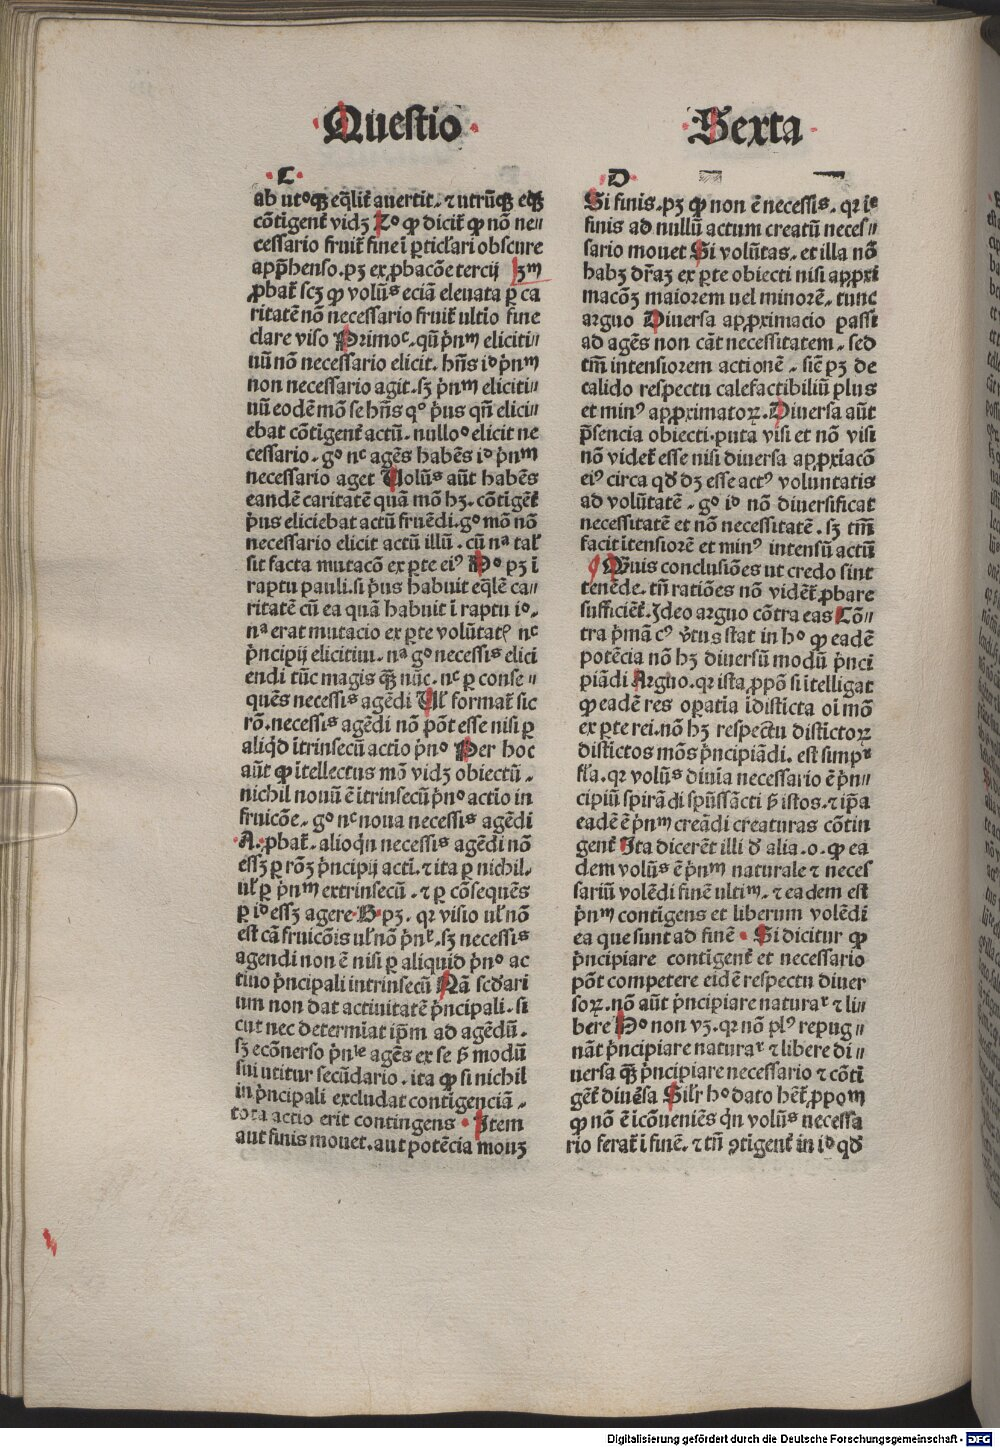 Questio
Sexta
C
ab utoqꝫ eq̄lit̄ auertit. ⁊ utrūqꝫ eqꝫ
cōtīgent̄ vidꝫ Co ꝙ dicit̄ ꝙ nō ne⸗
cessario fruit̄ fine ī ꝑticl̄ari obscure
app̄henso. pꝫ ex ꝓbacōe tercij 3m
ꝓbat̄ scꝫ ꝙ volūs eciā eleuata ꝑ ca
ritatē nō necessario fruit̄ ultīo fine
clare viso Primo⸗. qū p̄nm eliciti⸗
uū nō necessario elicit. hn̄s io p̄nm
non necessario agit. sꝫ p̄nm eliciti⸗
uū eodē mō se hn̄s qo p̄us qn̄ elici⸗
ebat cōtīgent̄ actū. nullo elicit ne
cessario. go nc agēs habēs io p̄nm
necessario aget Volūs aūt habēs
eandē caritatē quā mō hꝫ. cōtīgēt̄
p̄us eliciebat actū fruēdi. go mō nō
necessario elicit actū illū. cū na tal̄
sit facta mutacō ex ꝑte eiꝰ Po pꝫ ī
raptu pauli. si p̄us habuit eq̄lē ca⸗
ritatē cū ea quā habuit ī raptu io.
na erat mutacio ex ꝑte volūtatꝭ nc
p̄ncipij elicitiui. na go necessis elici
endi tūc magis qꝫ nūc. nc ꝑ conse⸗
quēs necessis agēdi Vl̄ format̄ sic
rō. necessis agēdi nō pōt esse nisi ꝑ
aliq̄d ītrinsecū actīo p̄no Per hoc
aūt ꝙ ītellectus mō vidꝫ obiectū.
nichil nouū ē ītrinsecū p̄no actīo in
fruicōe. go nc noua necessis agēdi
A. ꝓbat̄. alioq̄n necessis agēdi nō
essꝫ ꝑ rōꝫ p̄ncipij acti. ⁊ ita ꝑ nichil.
ul̄ ꝑ p̄nm extrinsecū. ⁊ ꝑ cōsequēs
ꝑ id essꝫ agere B. pꝫ. qꝛ visio ul̄ nō
est cā fruicōis ul̄ nō p̄nr. sꝫ necessis
agendi non ē nisi ꝑ aliquid p̄no ac
tiuo p̄ncipali intrinsecū Nā scd̄ari
um non dat actiuitatē p̄ncipali. si
cut nec determīat ip̄m ad agēdū.
sꝫ ecōnerso p̄nle agēs ex se ẜ modū
sui utitur secūdario. ita ꝙ si nichil
in p̄ncipali excludat contīgenciā.
tota actio erit contingens Item
aut finis mouet. aut potēcia mouꝫ
D
Si finis. pꝫ ꝙ non ē necessis. qꝛ ie
finis ad nullū actum creatū neces⸗
sario mouet Si volūtas. et illa nō
habꝫ dr̄aꝫ ex ꝑte obiecti nisi apꝓxi
macōꝫ maiorem uel minorē. tunc
arguo Diuersa apꝓximacio passi
ad agēs non cāt necessitatem. sed
tm̄ intensiorem actionē. sic̄ pꝫ de
calido respectu calefactibiliū plus
et minꝰ apꝓximatoꝝ. Diuersa aūt
p̄sencia obiecti. puta visi et nō visi
nō videt̄ esse nisi diuersa apꝓxīacō
eiꝰ circa qd̄ dꝫ esse actꝰ voluntatis
ad volūtatē. go io nō diuersificat
necessitatē et nō necessitatē. sꝫ tm̄
facit ītensiorē et minꝰ intensū actū
Qͣuis conclusiōes ut credo sint
tenēde. tn̄ ratiōes nō vidēt̄ ꝓbare
sufficiēt̄. Ideo arguo cōtra eas Cō⸗
tra p̄mā cꝰ v̄tus stat in ho ꝙ eadē
potēcia nō hꝫ diuersū modū p̄nci
piādi Arguo. qꝛ ista ꝓpō si ītelligat̄
ꝙ eadē res oꝑatīa īdisticta oī mō
ex ꝑte rei. nō hꝫ respectu distictoꝝ
distictos mōs p̄ncipiādi. est simpr
fl̄a. qꝛ volūs diuīa necessario ē p̄n⸗
cipiū spirādi spūssācti ẜ istos. ⁊ ip̄a
eadē ē p̄nm creādi creaturas cōtin
gent̄ Ita dicerēt illi d̄ alia. o. ꝙ ea
dem volūs ē p̄nm naturale ⁊ neces
sariū volēdi finē ultim. ⁊ eadem est
p̄nm contīgens et liberum volēdi
ea que sunt ad finē Si dicitur ꝙ
p̄ncipiare contīgent̄ et necessario
pōt competere eidē respectu diuer
soꝝ. nō aūt p̄ncipiare naturar ⁊ li⸗
bere Ho non vꝫ. qꝛ nō plꝰ repug⸗
nāt p̄ncipiare naturar ⁊ libere di⸗
uersa qꝫ p̄ncipiare necessario ⁊ cōtī
gēt̄ diuēsa Silr̄ ho dato hēt̄ ꝓpom
ꝙ nō ē īcōueniēs q̄n volūs necessa
rio ferat̄ ī finē. ⁊ tn̄ ꝯtīgent̄ in io qd̄
Digitalisierung gefördert durch die Deutsche Forschungsgemeinschaft - DFG